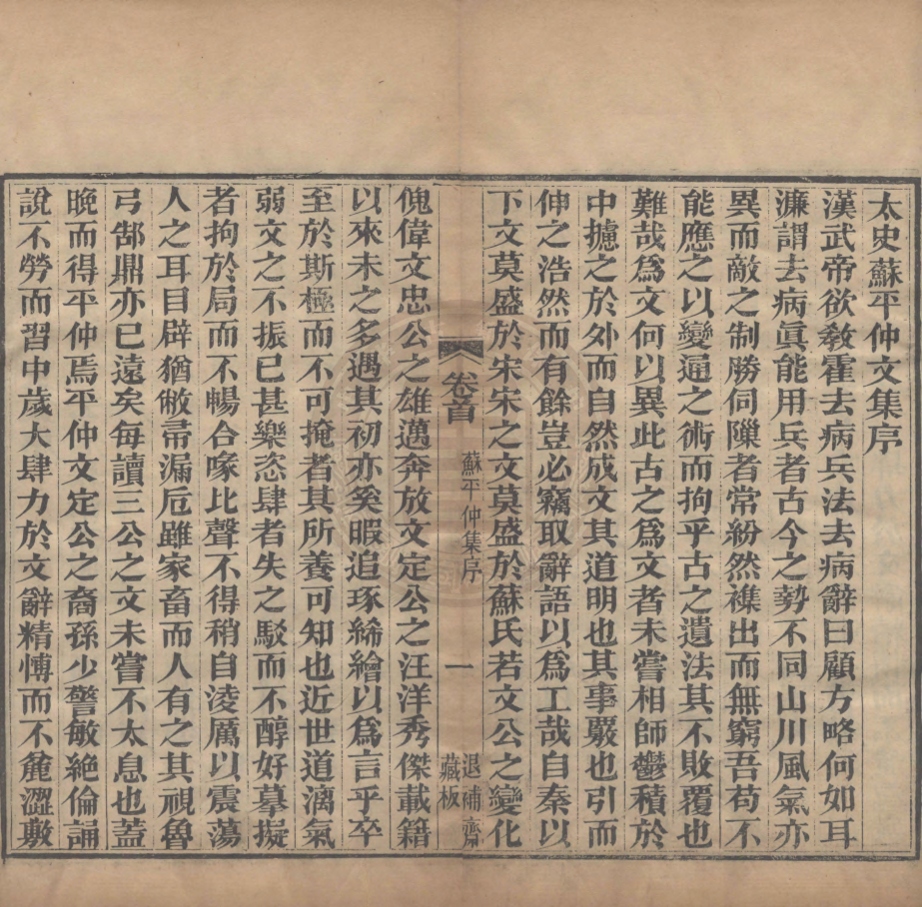 太史蘇平仲文集序
漢武帝欲敎霍去病兵法去病辭曰顧方略何如耳
濂謂去病眞能用兵者古今之勢不同山川風氣亦
異而敵之制勝伺隟者常紛然襍出而無窮吾苟不
能應之以變通之術而拘乎古之遺法其不敗覆也
難哉爲文何以異此古之爲文者未嘗相師鬱積於
中攄之於外而自然成文其道明也其事覈也引而
伸之浩然而有餘豈必竊取辭語以爲工哉自秦以
下文莫盛於宋宋之文莫盛於蘇氏若文公之變化
卷首
蘇平仲集序
一
退補齋
藏板
傀偉文忠公之雄邁奔放文定公之汪洋秀傑載籍
以來未之多遇其初亦奚暇追琢絺繪以爲言乎卒
至於斯極而不可掩者其所養可知也近世道漓氣
弱文之不振已甚樂恣肆者失之駁而不醇好摹擬
者拘於局而不暢合喙比聲不得稍自淩厲以震蕩
人之耳目辟猶敝帚漏卮雖家畜而人有之其視魯
弓郜鼎亦已遠矣每讀三公之文未嘗不太息也蓋
晚而得平仲焉平仲文定公之裔孫少警敏絶倫誦
說不勞而習中歲大肆力於文辭精慱而不麄澀敷